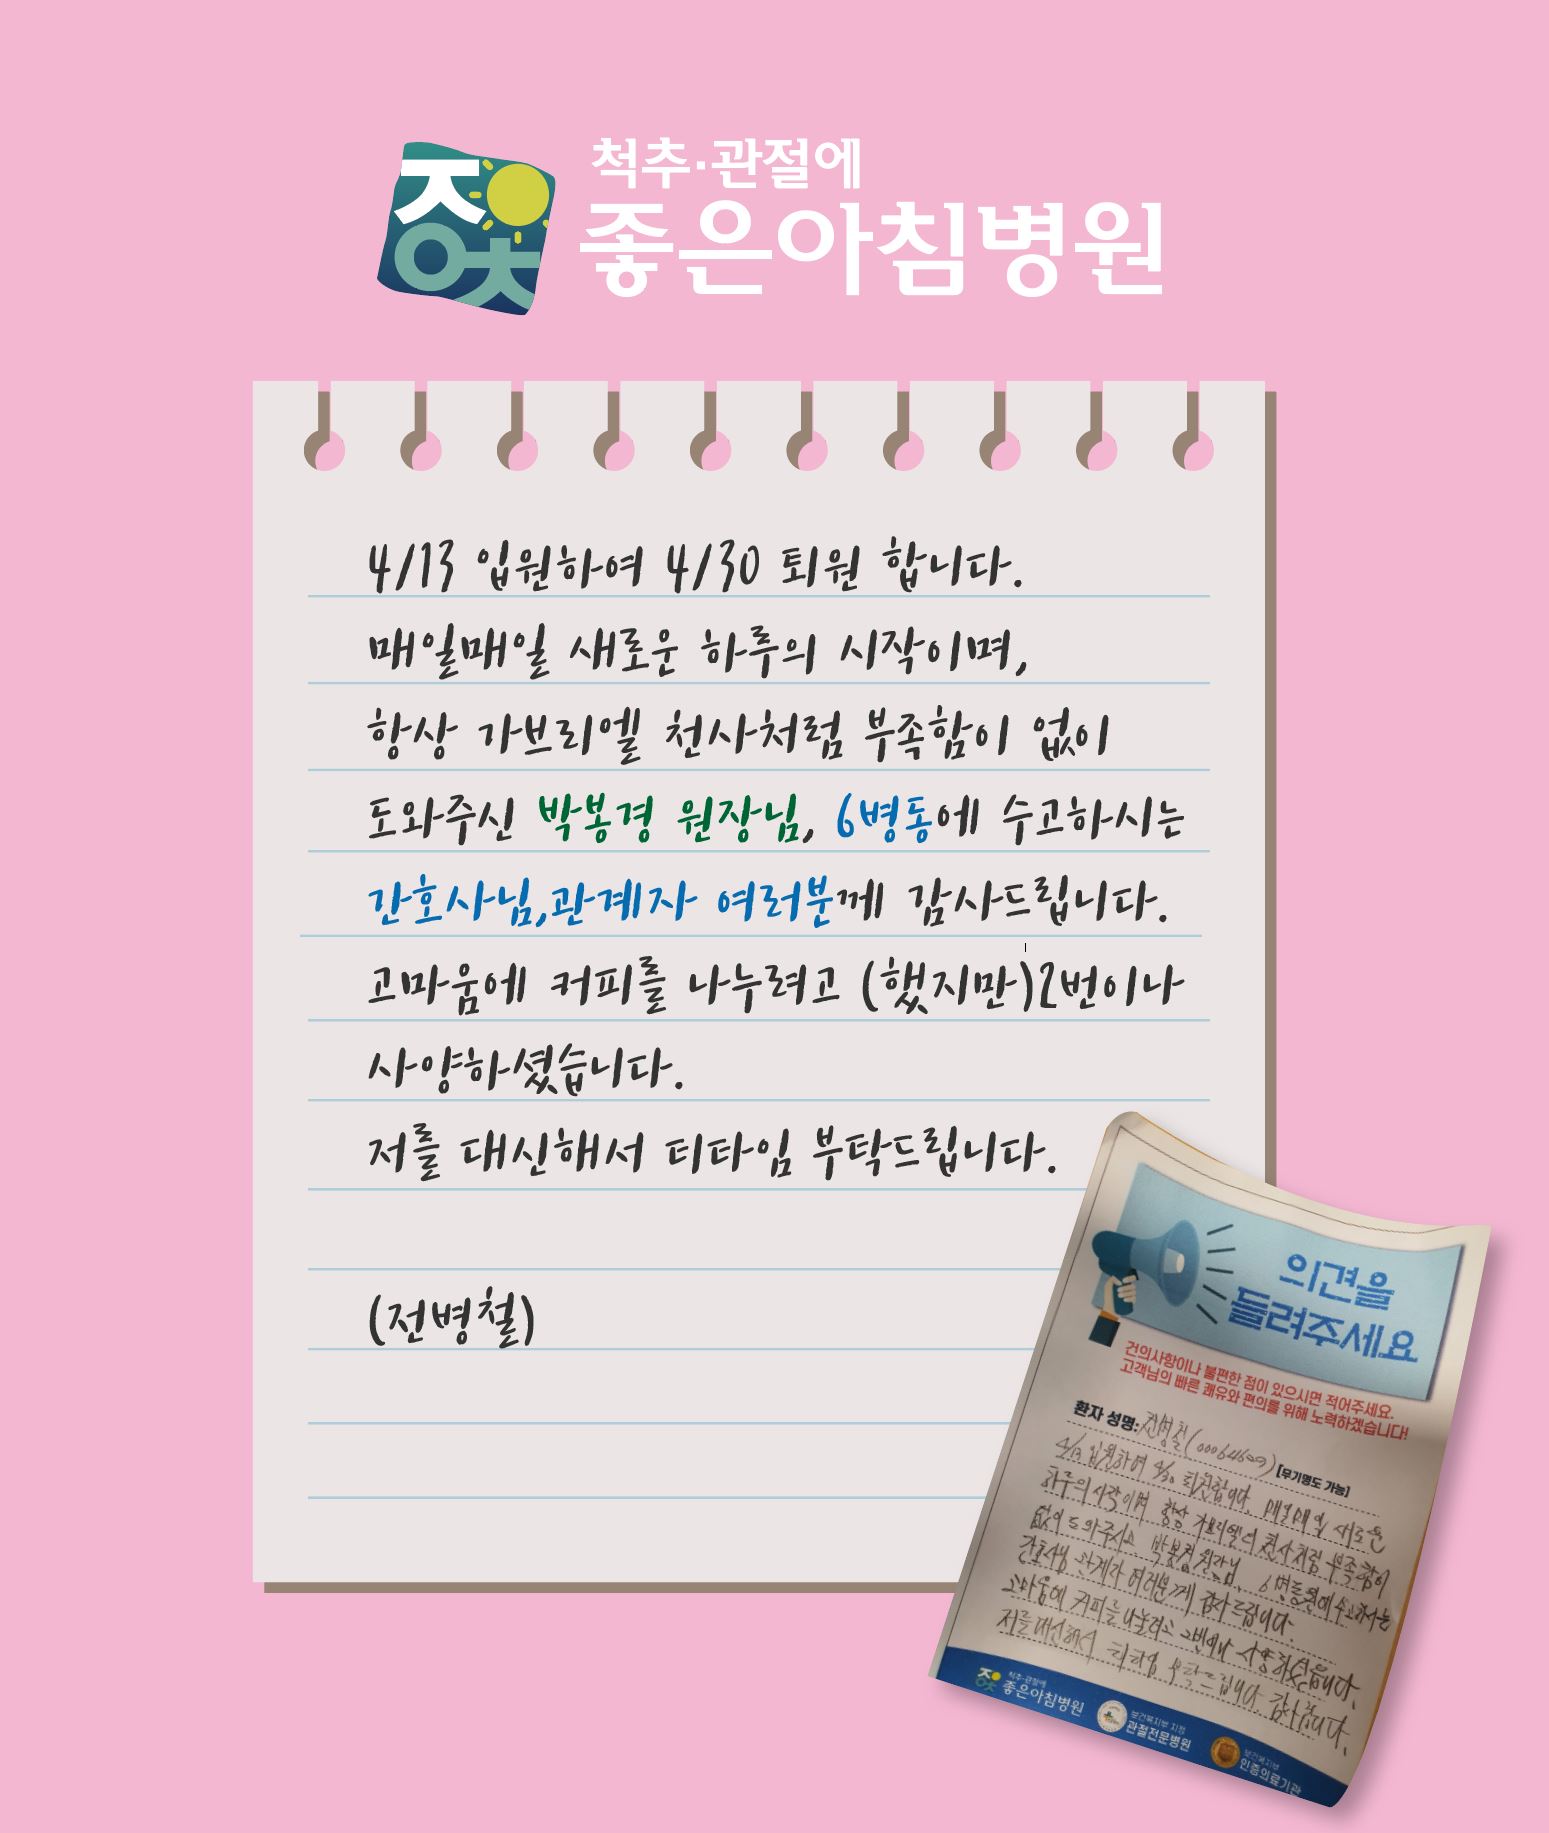 척추·관절에
좋은아침병원
4/13 입원하여 4/30 퇴원 합니다.
매일매일 새로운 하루의 시작이며,
항상 가브리엘 천사처럼 부족함이 없이
도와주신 박봉경 원장님, 6병동에 수고하시는
간호사님,관계자 여러분께 감사드립니다.
고마움에 커피를 나누려고 (했지만)2번이나
사양하셨습니다.
저를 대신해서 티타임 부탁드립니다.
(전병철)
의견을
들려주세요
건의사항이나 불편한 점이 있으시면 적어주세요.
고객님의 빠른 쾌유와 편의를 위해 노력하겠습니다!
환자 성명: 전병철 [무기명도 가능]
4/13 입원하여 4/30 퇴원합니다. 매일매일 새로운
하루의 시작이며 항상 천사처럼 부족함이
없이 도와주시고 박봉경 원장님, 수고하시는
간호사님 관계자 여러분께 감사드립니다.
고마움에 커피를 2번이나 사양하셨습니다.
저를 대신해서 티타임 부탁드립니다. 감사합니다.
척추·관절에
좋은아침병원
보건복지부 지정
관절전문병원
보건복지부
인증의료기관